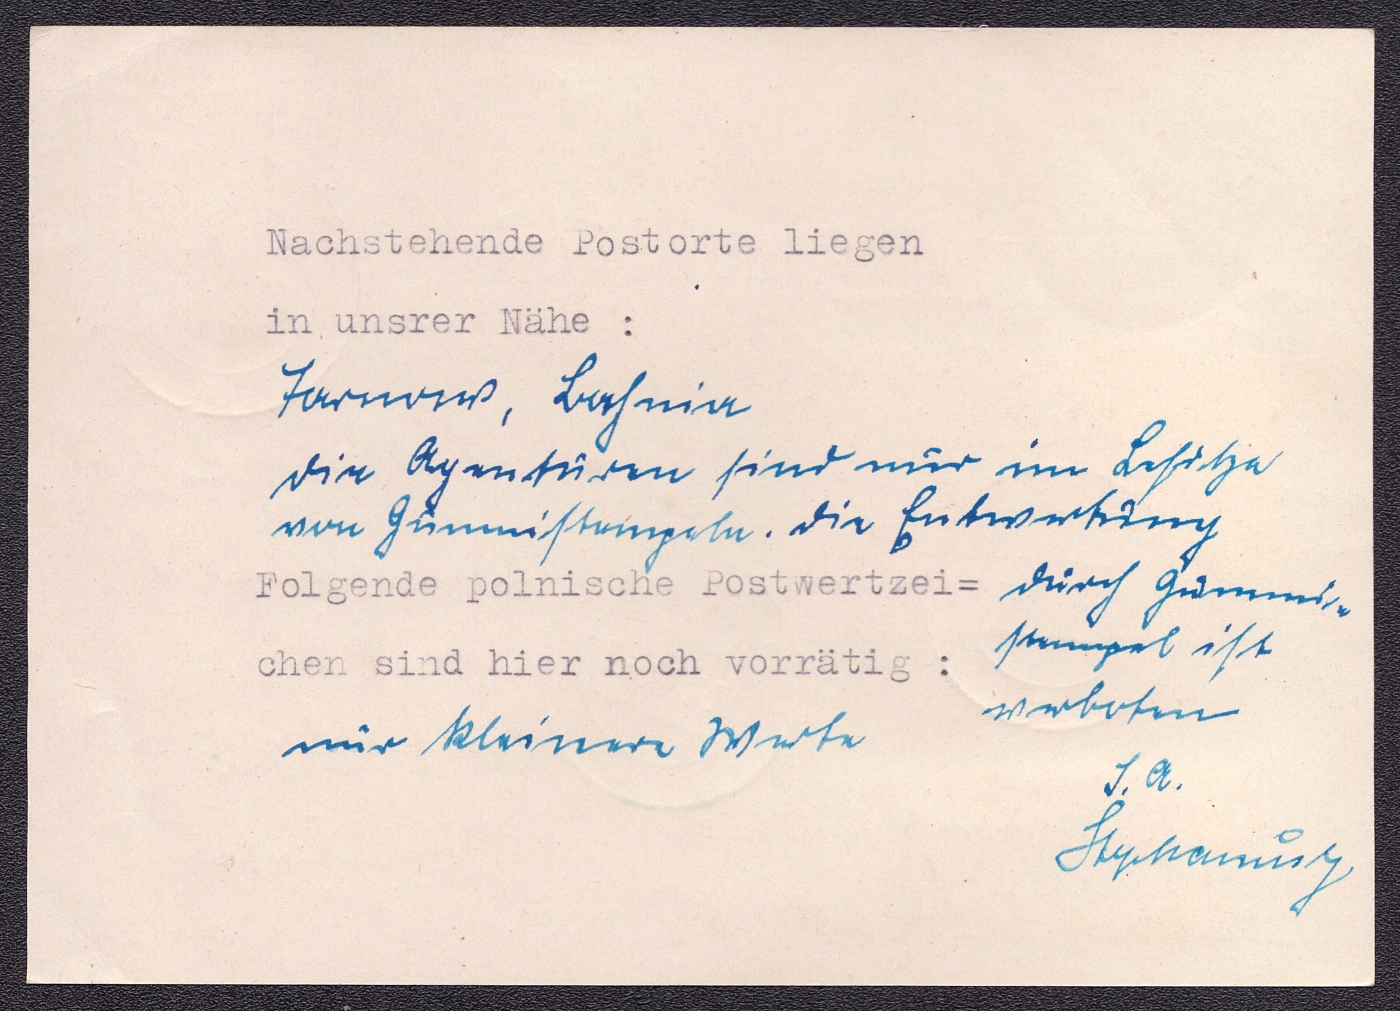 Nachstehende Postorte liegen
in unsrer Nähe :
Tarnow, Bochnia
die Agenturen sind nur im Besitze
von Gummistempeln. die Entwertung
durch Gummi-
stempel ist
verboten
Folgende polnische Postwertzei=
chen sind hier noch vorrätig :
nur kleinere Werte
I. A.